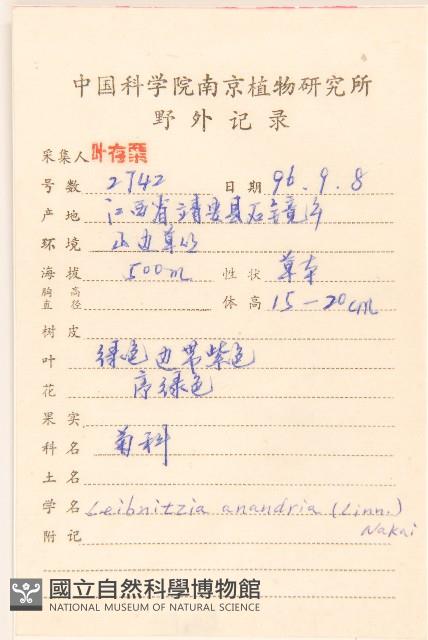 中国科学院南京植物研究所
野外记录
采集人 叶存粟
号数 2742 日期 96.9.8
产地 江西省靖安县石镜
环境 山边草丛
海拔 500m 性状 草本
胸高直径 体高 15-20cm
树皮
叶 绿色边带紫色
花 序绿色
果实
科名 菊科
土名
学名 Leibnitzia anandria (Linn.)
附记 Nakai
國立自然科學博物館
NATIONAL MUSEUM OF NATURAL SCIENCE